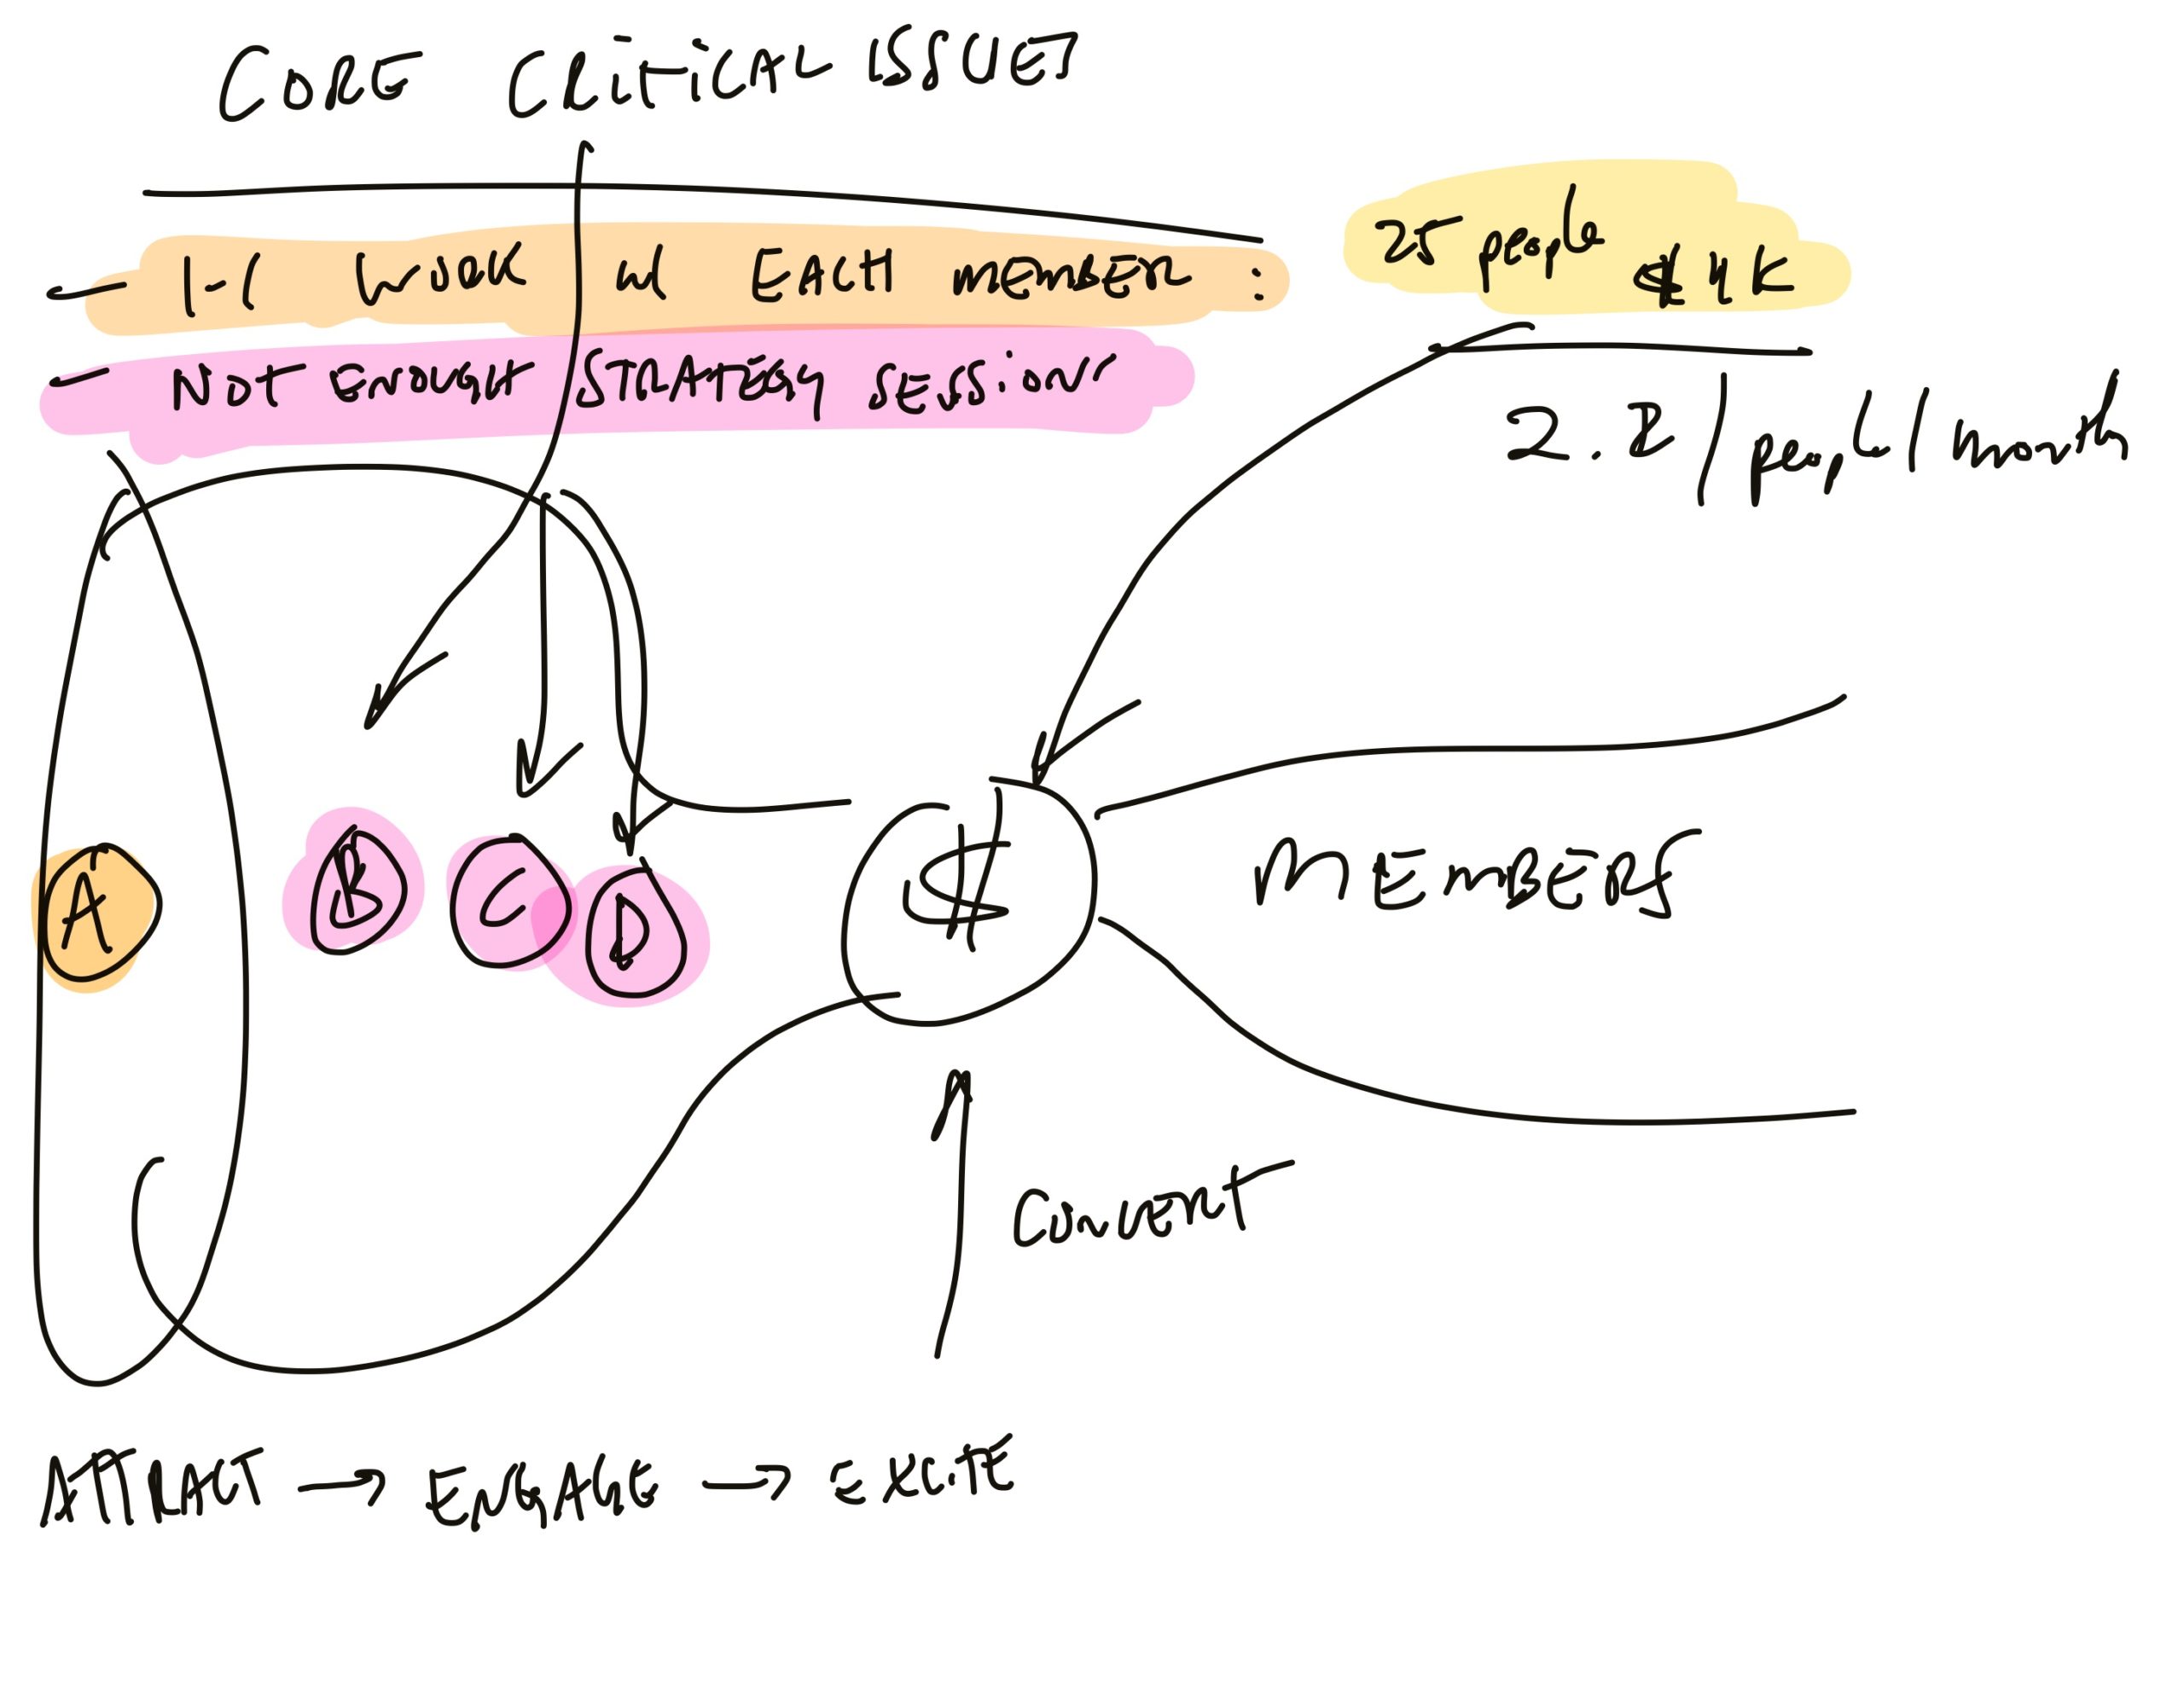 CORE CRITICAL ISSUES
- 1-1 WORK W/ EACH MEMBER :
25 people
$4K
- NOT ENOUGH STRATEGY SESSIONS
/ people / month
A B C D $ MEMBERS
CONVERT
ATTRACT → ENGAGE → EXCITE